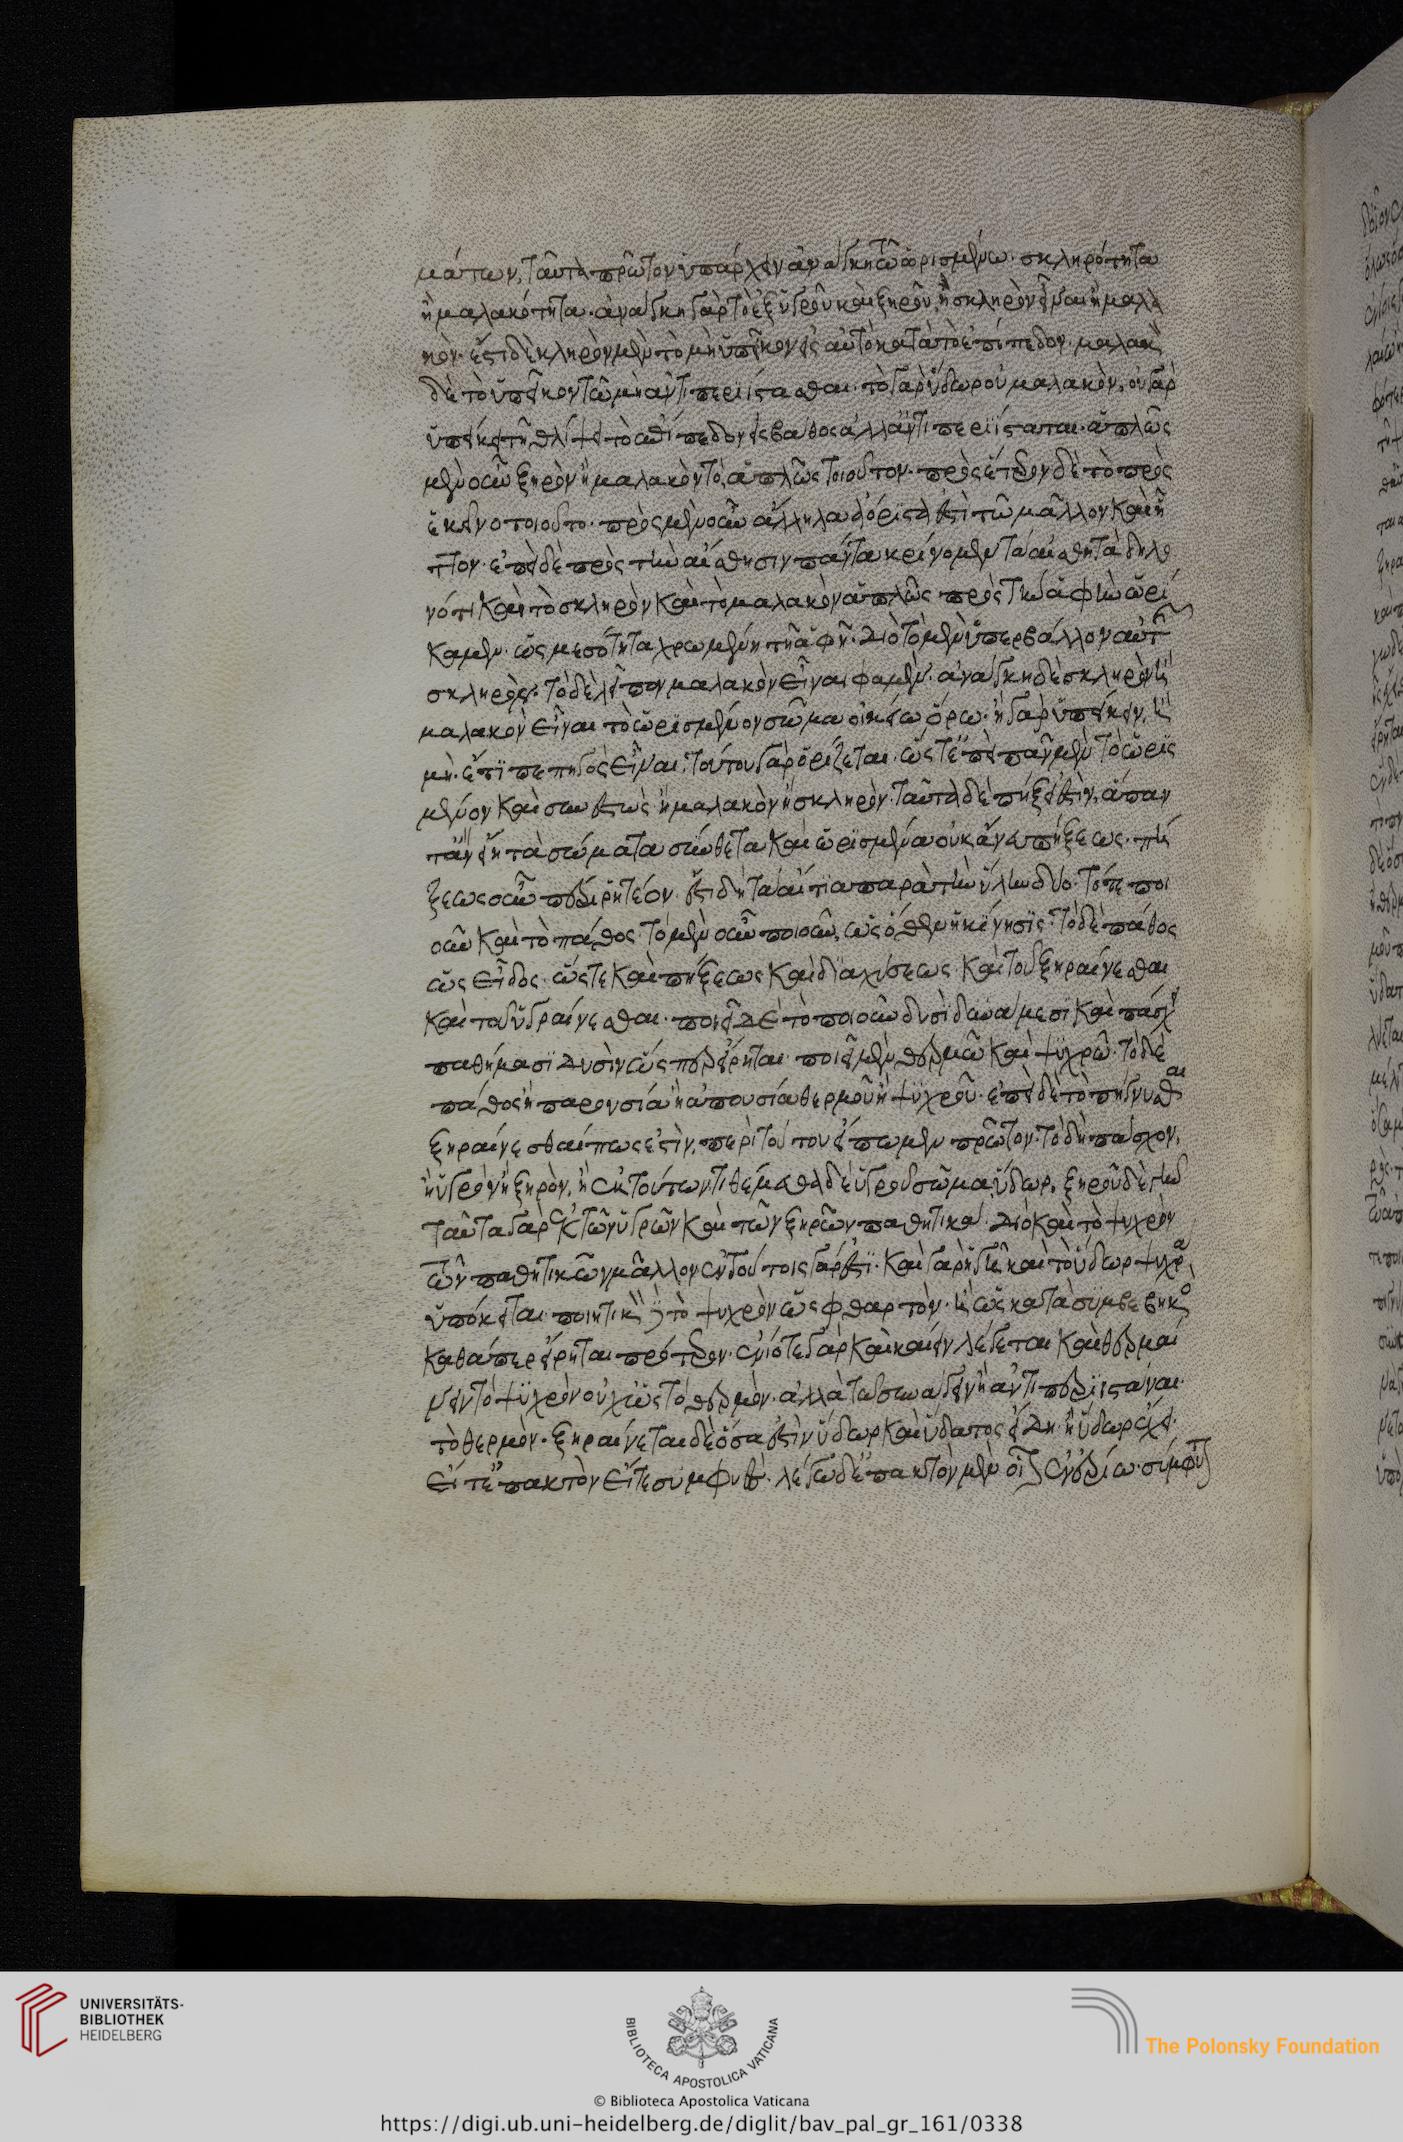 μάτων, ταῦτα πρῶτον ὑπάρχειν ἀνάγκη τῶ ὁρισμένω. σκληρότητα
ἢ μαλακότητα. ἀνάγκη γὰρ τὸ ἐξ ὑγροῦ καὶ ξηροῦ, ἢ σκληρὸν εἶναι ἢ μαλα
κόν. ἔστι δὲ σκληρὸν μὲν τὸ μὴ ὑπεῖκον εἰς αὐτὸ κατὰ τὸ ἐπίπεδον. μαλακὸ
δὲ τὸ ὑπεῖκον τῶ μὴ ἀντιπεριίστασθαι. τὸ γὰρ ὕδωρ οὐ μαλακὸν, οὐ γὰρ
ὑπείκει τῆ θλίψει τὸ ἐπίπεδον εἰς βάθος ἀλλ' ἀντιπεριίσταται. ἁπλῶς
μὲν οὖν ξηρὸν ἢ μαλακὸν τὸ ἁπλῶς τοιοῦτον. πρὸς ἕτερον δὲ τὸ πρὸς
ἐκεῖνο τοιοῦτο. πρὸς μὲν οὖν ἄλληλα ἀόριστά ἐστι τῶ μᾶλλον καὶ ἧ
ττον. ἐπεὶ δὲ πρὸς τὴν αἴσθησιν πάντα κρίνομεν τὰ αἰσθητὰ δηλο
νότι καὶ τὸ σκληρὸν καὶ τὸ μαλακὸν ἁπλῶς πρὸς τὴν ἁφὴν ὡρί
καμεν. ὡς μεσότητι χρώμενοι τῆ ἁφῆ. διὸ τὸ μὲν ὑπερβάλλον αὐτὴν
σκληρὸν. τὸ δὲ ἐλλεῖπον μαλακὸν εἶναι φαμέν. ἀνάγκη δὲ σκληρὸν ἢ
μαλακὸν εἶναι τὸ ὡρισμένον σῶμα οἰκείω ὅρω. ἢ γὰρ ὑπείκειν, ἢ
μή. ἔτι πεπηγὸς εἶναι. τούτου γὰρ ὁρίζεται. ὥστε ἐπεὶ πᾶν μὲν τὸ ὡρισ
μένον καὶ συνεστὼς ἢ μαλακὸν ἢ σκληρὸν. ταῦτα δὲ πήξει ἐστὶν, ἅπαν
τα ἂν εἴη τὰ σώματα σύνθετα καὶ ὡρισμένα οὐκ ἄνευ πήξεως. πή
ξεως οὖν περὶ ῥητέον. ἔστι δὴ τὰ αἴτια παρὰ τὴν ὕλην δύο. τό τε ποι
οῦν καὶ τὸ πάθος. τὸ μὲν οὖν ποιοῦν, ὡς ὅθεν ἡ κίνησις. τὸ δὲ πάθος
ὡς εἶδος. ὥστε καὶ πήξεως καὶ διαχύσεως. καὶ τοῦ ξηραίνεσθαι
καὶ τοῦ ὑγραίνεσθαι. ποιεῖ δὲ τὸ ποιοῦν δυσὶ δυνάμεσι καὶ πάσχει
παθήμασι δυσὶν ὥσπερ εἴρηται. ποιεῖ μὲν θερμῶ καὶ ψυχρῶ. τὸ δὲ
πάθος ἢ παρουσία ἢ ἀπουσία θερμοῦ ἢ ψυχροῦ. ἐπεὶ δὲ τὸ πήγνυσθαι
ξηραίνεσθαί πως ἐστὶν, περὶ τούτου εἴπωμεν πρῶτον. τὸ δὴ πάσχον,
ἢ ὑγρὸν ἢ ξηρὸν, ἢ ἐκ τούτων. τιθέμεθα δὲ ὑγροῦ σῶμα ὕδωρ, ξηροῦ δὲ γῆν
ταῦτα γὰρ ἐκ τῶν ὑγρῶν καὶ τῶν ξηρῶν παθητικά. διὸ καὶ τὸ ψυχρὸν
τῶν παθητικῶν μᾶλλον ἐν τούτοις γάρ ἐστι. καὶ γὰρ ἡ γῆ καὶ τὸ ὕδωρ ψυχρὰ
ὑπόκειται. ποιητικὸν δὲ τὸ ψυχρὸν ὡς φθαρτὸν. ἢ ὡς κατὰ συμβεβηκὸς
καθάπερ εἴρηται πρότερον. ἐνίοτε γὰρ καὶ καίειν λέγεται καὶ θερμαί
νειν τὸ ψυχρὸν οὐχ ὡς τὸ θερμὸν. ἀλλὰ τῶ συνάγειν ἢ ἀντιπεριιστάναι
τὸ θερμὸν. ξηραίνεται δὲ ὅσα ἐστὶν ὕδωρ καὶ ὕδατος εἴδη. ἢ ὕδωρ ἔχει.
εἴτε ἐπακτὸν εἴτε σύμφυτον. λέγω δὲ ἐπακτὸν μὲν οἷον ἐν ἐρίω. σύμφυτον
UNIVERSITÄTS-
BIBLIOTHEK
HEIDELBERG
BIBLIOTECA APOSTOLICA VATICANA
The Polonsky Foundation
© Biblioteca Apostolica Vaticana
https://digi.ub.uni-heidelberg.de/diglit/bav_pal_gr_161/0338